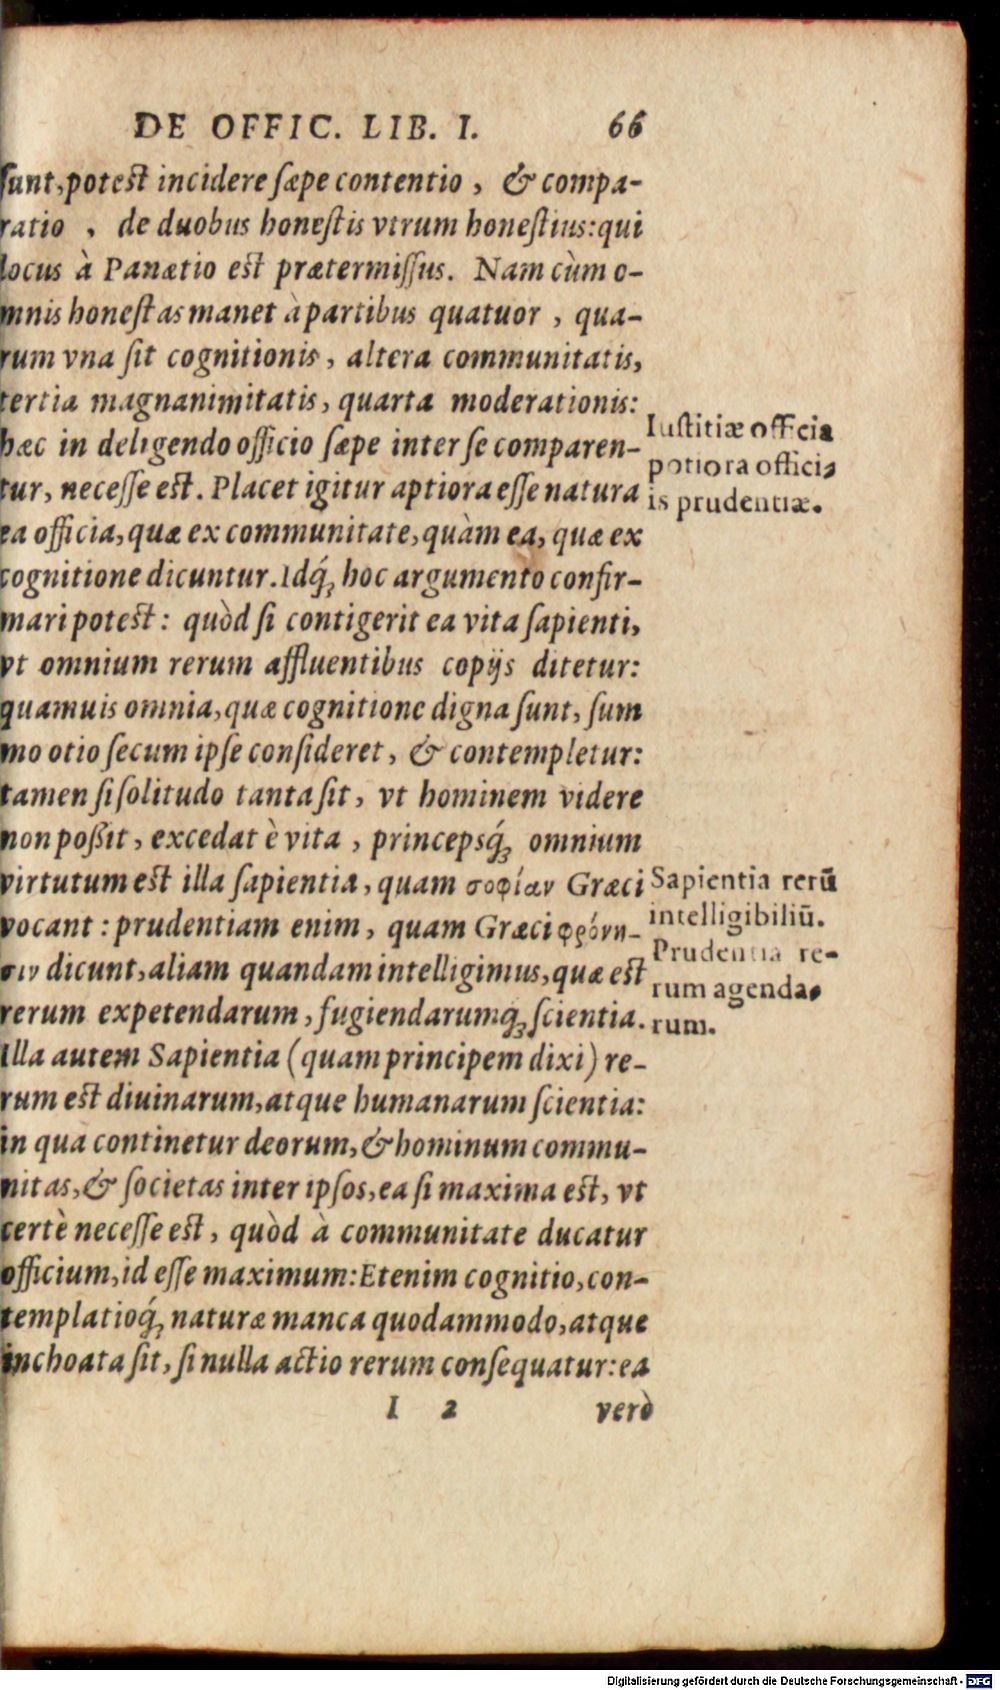 DE OFFIC. LIB. I. 66
sunt, potest incidere sæpe contentio, & compa-
ratio, de duobus honestis vtrum honestius: qui
locus à Panætio est prætermissus. Nam cùm o-
mnis honestas manet à partibus quatuor, qua-
rum vna sit cognitionis, altera communitatis,
tertia magnanimitatis, quarta moderationis:
hæc in deligendo officio sæpe inter se comparen-
tur, necesse est. Placet igitur aptiora esse natura
ea officia, quæ ex communitate, quàm ea, quæ ex
cognitione dicuntur. Idq́; hoc argumento confir-
mari potest: quòd si contigerit ea vita sapienti,
vt omnium rerum affluentibus copijs ditetur:
quamuis omnia, quæ cognitione digna sunt, sum
mo otio secum ipse consideret, & contempletur:
tamen si solitudo tanta sit, vt hominem videre
non poßit, excedat è vita, princepsq́; omnium
virtutum est illa sapientia, quam σοφίαν Græci
vocant: prudentiam enim, quam Græci φρόνη-
σιν dicunt, aliam quandam intelligimus, quæ est
rerum expetendarum, fugiendarumq; scientia.
Illa autem Sapientia (quam principem dixi) re-
rum est diuinarum, atque humanarum scientia:
in qua continetur deorum, & hominum commu-
nitas, & societas inter ipsos, ea si maxima est, vt
certè necesse est, quòd à communitate ducatur
officium, id esse maximum: Etenim cognitio, con-
templatioq́; naturæ manca quodammodo, atque
inchoata sit, si nulla actio rerum consequatur: ea
I 2 verò
Iustitiæ officia
potiora offici-
is prudentiæ.
Sapientia rerū
intelligibiliū.
Prudentia re-
rum agenda-
rum.
Digitalisierung gefördert durch die Deutsche Forschungsgemeinschaft - DFG